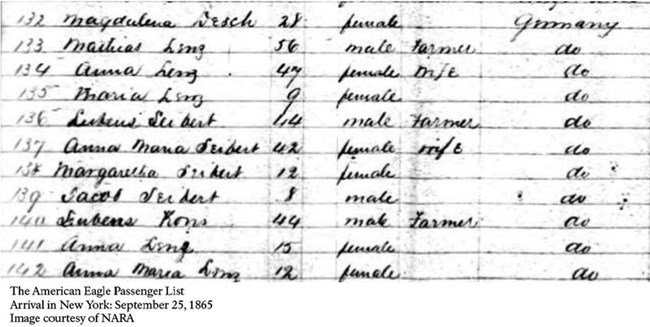 132 Magdalena Desch 28 female Germany
133 Mathias Leng 56 male Farmer do
134 Anna Leng 47 female Wife do
135 Maria Leng 9 female do
136 Lubens Seibert 44 male Farmer do
137 Anna Maria Seibert 42 female Wife do
138 Margaretha Seibert 12 female do
139 Jacob Seibert 8 male do
140 Lubens Kons 44 male Farmer do
141 Anna Leng 15 female do
142 Anna Maria Leng 12 female do
The American Eagle Passenger List
Arrival in New York: September 25, 1865
Image courtesy of NARA